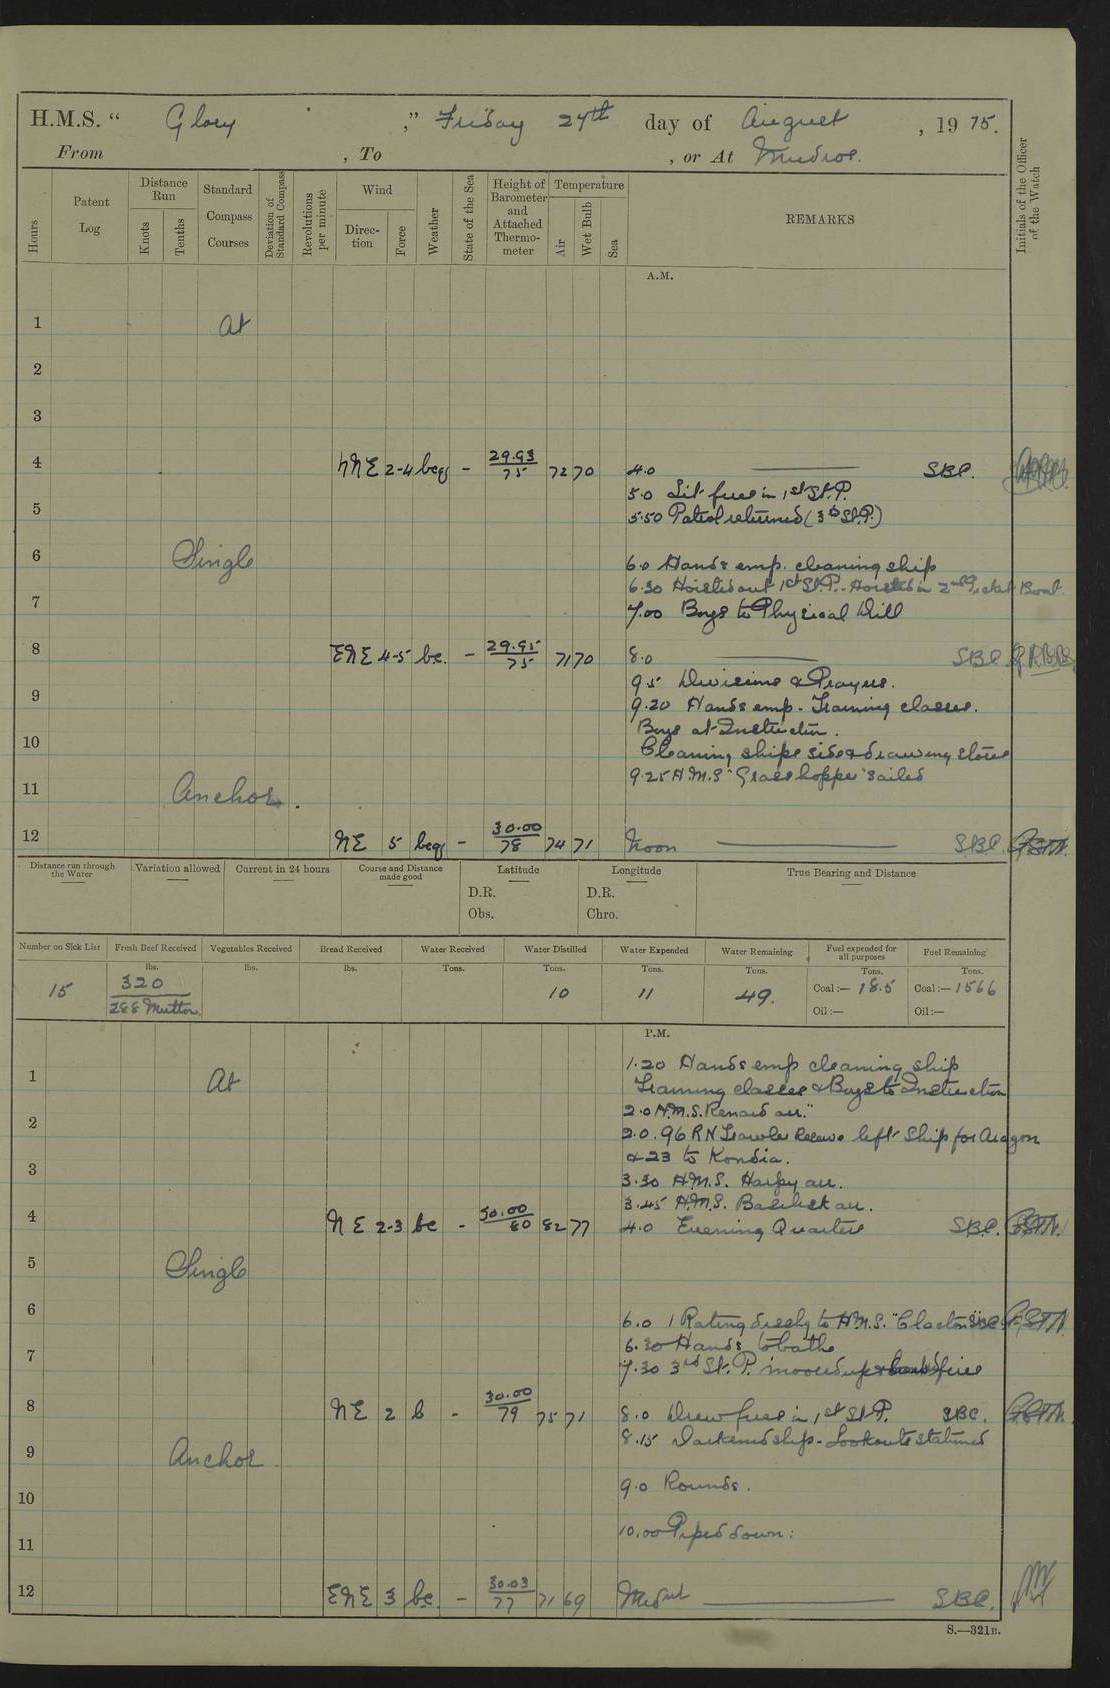 H.M.S. " Glory ," Friday 27th day of August , 1915.
From , To , or At Mudros.
Hours
Patent Log
Distance Run
Knots
Tenths
Standard Compass Courses
Deviation of Standard Compass
Revolutions per minute
Wind
Direction
Force
Weather
State of the Sea
Height of Barometer and Attached Thermometer
Temperature
Air
Wet Bulb
Sea
REMARKS
Initials of the Officer of the Watch
A.M.
1 At
2
3
4 NNE 2-4 bcq - 29.93 75 72 70 4.0 SBC.
5.0 Lit fires in 1st St. P.
5 5.50 Patrol returned (3rd St.P.)
6 Single 6.0 Hands emp. cleaning ship
6.30 Hoisted out 1st St.P. - Hoisted in 2nd Picket Boat.
7 7.00 Boys to Physical Drill
8 ENE 4-5 bc. - 29.95 75 71 70 8.0 SBC
9.5 Divisions & Prayers.
9 9.20 Hands emp. Training classes.
Boys at Instruction.
10 Cleaning ships side & drawing stores
9.25 H.M.S "Grasshopper" sailed
11 Anchor.
12 NE 5 bcq - 30.00 78 74 71 Noon SBC
Distance run through the Water
Variation allowed
Current in 24 hours
Course and Distance made good
Latitude
D.R.
Obs.
Longitude
D.R.
Chro.
True Bearing and Distance
Number on Sick List
Fresh Beef Received
Vegetables Received
Bread Received
Water Received
Water Distilled
Water Expended
Water Remaining
Fuel expended for all purposes
Fuel Remaining
lbs. lbs. lbs. Tons. Tons. Tons. Tons. Tons. Tons.
15 320 10 11 49. Coal:— 18.5 Coal:— 1566
288 Mutton
Oil:— Oil:—
P.M.
1.20 Hands emp cleaning ship
1 At Training classes & Boys to Instruction
2.0 H.M.S. Renard arr."
2 2.0. 96 RN Trawler Reserve left Ship for Aragon
& 23 to Kondia.
3 3.30 H.M.S. Harpy arr.
3.45 H.M.S. Basilisk arr.
4 NE 2-3 bc - 30.00 80 82 77 4.0 Evening Quarters SBC.
5 Single
6 6.0 1 Rating dischg to H.M.S. "Clacton" SBC
6.30 Hands to bathe
7 7.30 3rd St. P. moored up & banked fires
8 NE 2 b - 30.00 79 75 71 8.0 Drew fires in 1st St P. SBC.
8.15 Darkened ship - Lookouts stationed
9 Anchor
9.0 Rounds.
10
10.00 Piped down:
11
12 ENE 3 bc. - 30.03 77 71 69 Midnt SBC.
S.—321B.